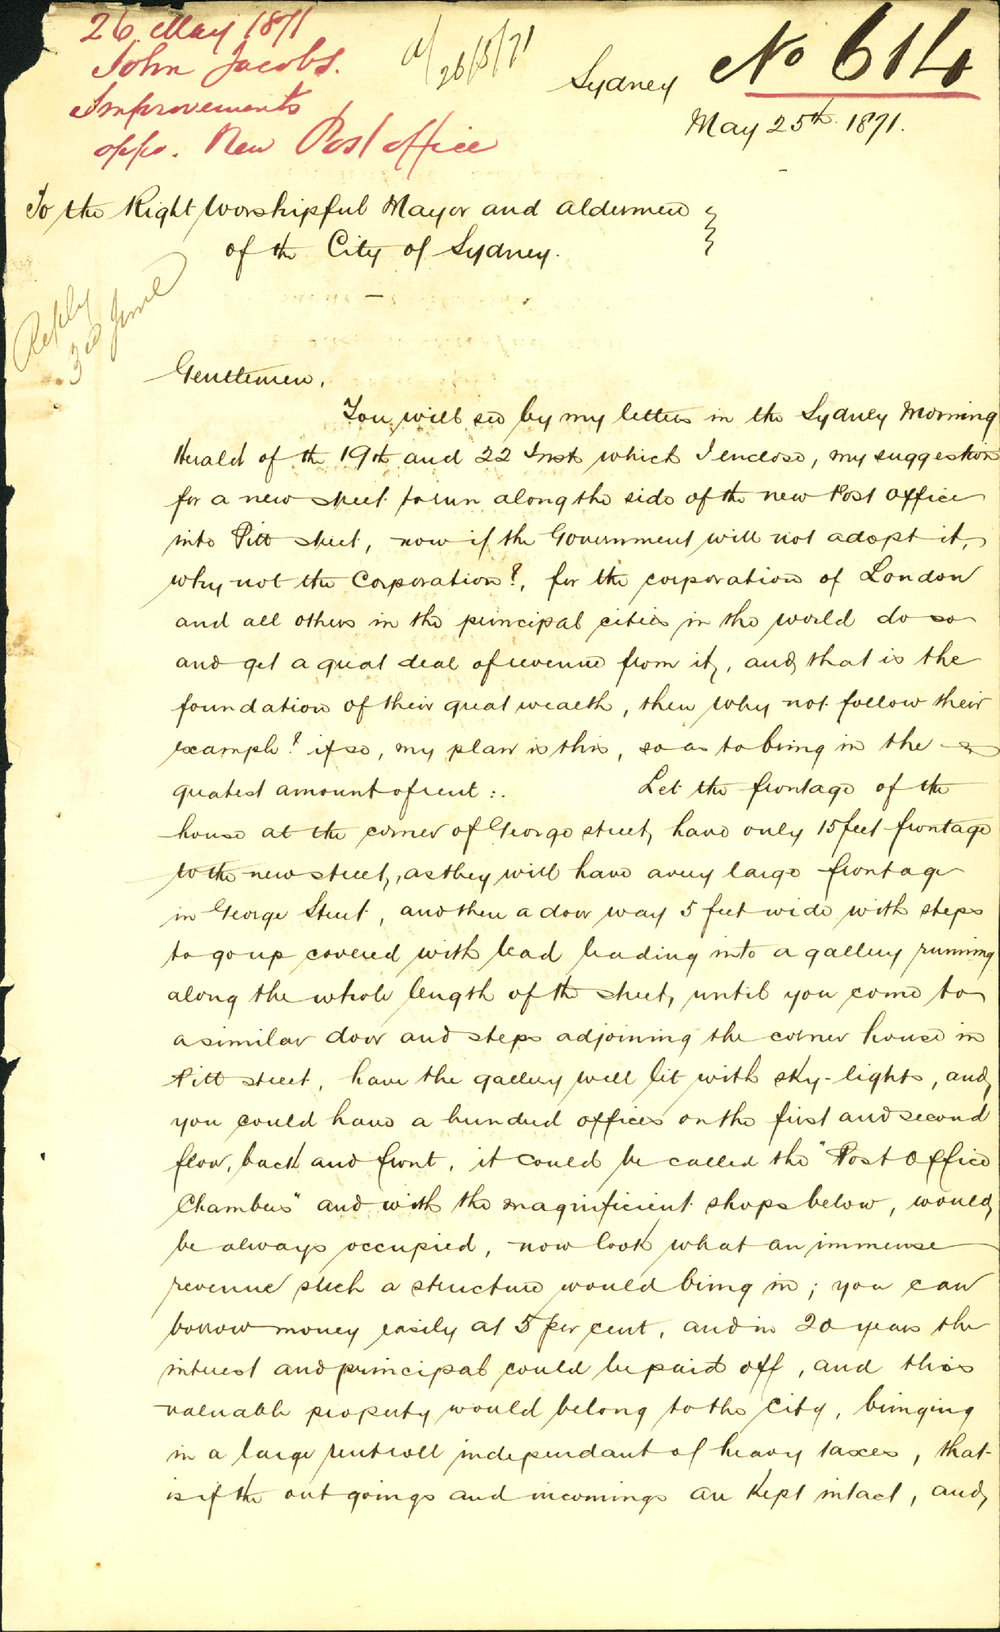 26 May 1871
John Jacobs.
Improvements
oppo. New Post office
26/5/71
No 614
Sydney
May 25th 1871.
To the Right Worshipful Mayor and aldermen
of the City of Sydney.
Reply
3rd June
Gentlemen,
You will see by my letters in the Sydney Morning
Herald of the 19th and 22 Inst which I enclose, my suggestion
for a new street to run along the side of the new Post office
into Pitt street, now if the Government will not adopt it,
why not the Corporation?, for the corporation of London
and all others in the principal cities in the world do so
and get a great deal of revenue from it, and that is the
foundation of their great wealth, then why not follow their
example? if so, my plan is this, so as to bring in the
greatest amount of rent :. Let the frontage of the
house at the corner of George street, have only 15 feet frontage
to the new street, as they will have a very large frontage
in George Street, and then a door way 5 feet wide with steps
to go up covered with lead leading into a gallery running
along the whole length of the street, until you come to
a similar door and steps adjoining the corner house in
Pitt street, have the gallery well lit with sky-lights, and
you could have a hundred offices on the first and second
floor, back and front, it could be called the "Post Office
Chambers" and with the magnificient shops below, would
be always occupied, now look what an immense
revenue such a structure would bring in; you can
borrow money easily at 5 per cent, and in 20 years the
interest and principal could be paid off, and this
valuable property would belong to the City, bringing
in a large rent roll independant of heavy taxes, that
is if the out goings and incomings are kept intact, and